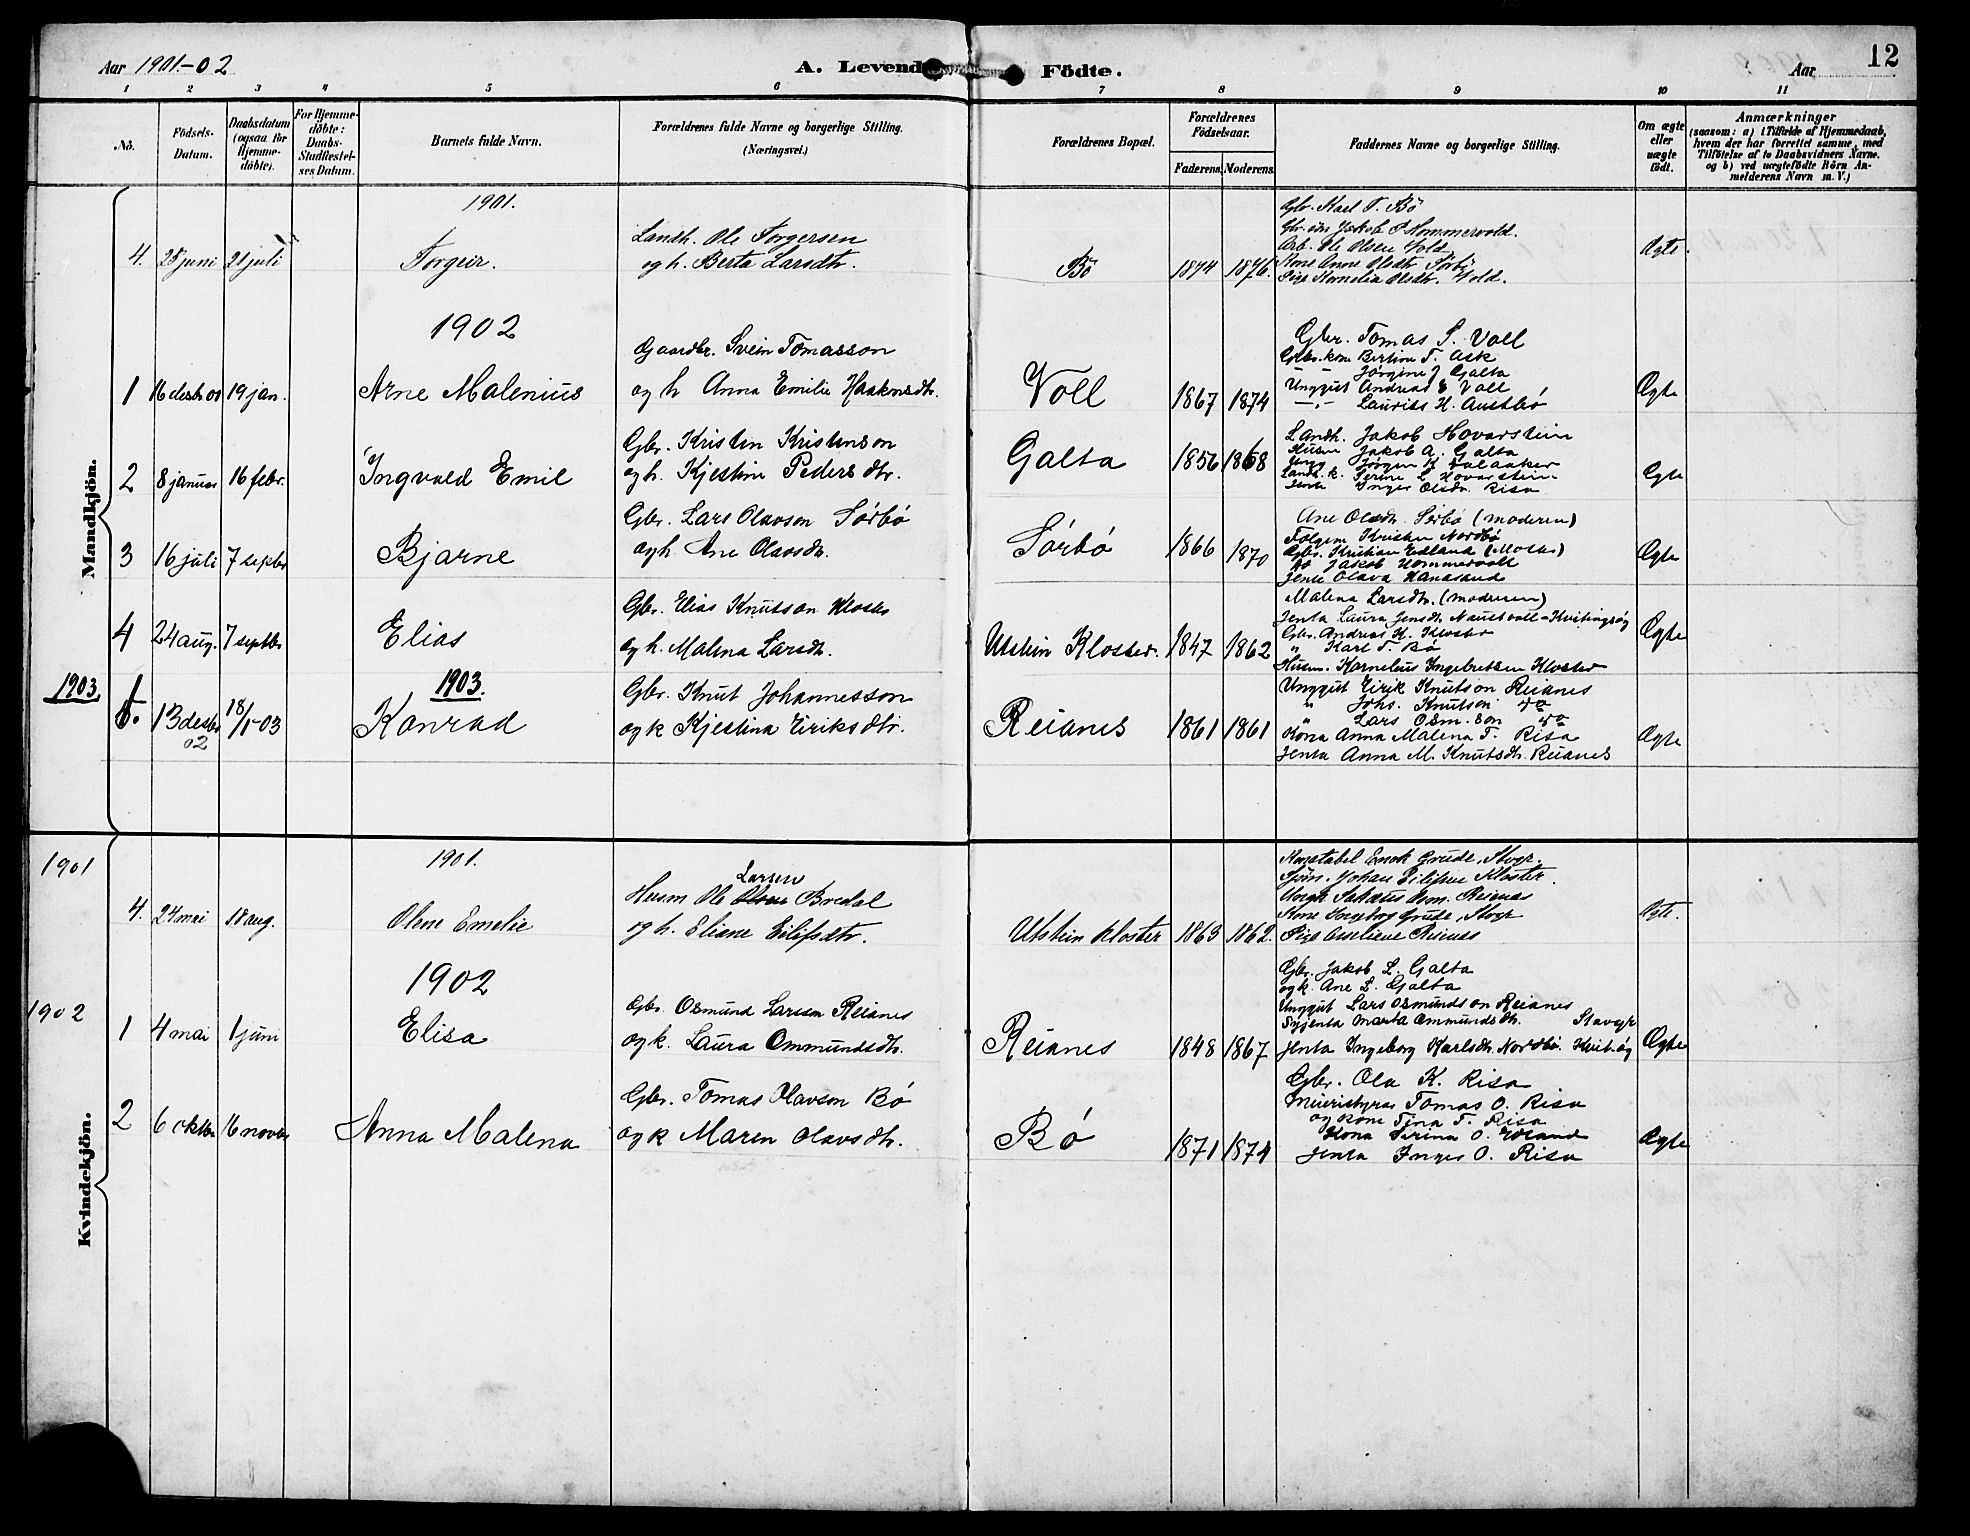 Aar 1901.-02
A. Levende
Födte.
Aar
12
1 2 3 4 5 6 7 8 9 10 11
No.
Födsels-Datum.
Daabsdatum (ogsaa för Hjemmedöbte).
For Hjemmedöbte: Daabs-Stadfæstelses Datum.
Barnets fulde Navn.
Forældrenes fulde Navne og borgerlige Stilling. (Næringsvei.)
Forældrenes Bopæl.
Forældrenes Födselsaar.
Faderens. Moderens.
Faddernes Navne og borgerlige Stilling.
Om ægte eller uægte födt.
Anmærkninger
(saasom: a) i Tilfælde af Hjemmedaab, hvem der har forrettet samme, med Tilföielse af to Daabsvidners Navne. og b) ved uægtefödte Börn Anmelderens Navn m. V.)
Mandkjön.
1901.
4. 28 juni 21 juli Torgeir.
Landh. Ole Torgersen
og h. Berta Larsdtr.
Bö 1874 1876.
Gbr. Karl T. Bö
Gbr. sön Jakob P Hommervold.
Arb. Ole Olsen Vold
Kone Anne Olsdtr Sörbö
Pige Kornelia Olsdtr. Vold.
Ægte.
1902
1 16 desbr 01 19 jan. Arne Malenius
Gaardbr. Svein Tomasson
og h Anna Emilie Haakonsdtr.
Voll 1867 1874
Gbr. Tomas S. Voll
Gbr. kone Bertine T. Ask
- - Jörgine J Galta
Unggut Andreas S Voll
-"- Laurits H. Austbö
Ægte
2 8 januar 16 febr. Ingvald Emil
Gbr. Kristen Kristenson
og h. Kjestine Pedersdtr.
Galta 1856 1868
Landh. Jakob Hovarstein
Husm Jakob A. Galta
Jörgen K
Landh. k. Serine L Hovarstein
Jenta Inger Olsdtr. Risa
Ægte
3 16 juli 7 septbr Bjarne
Gbr. Lars Olavson Sörbö
og h. Ane Olavsdtr.
Sörbö 1866 1870
Ane Olsdtr. Sörbö (moderen)
Kristen Nordbö
Gbr. Kristian Edland
do Jakob Hommervoll
Jente Olava Hanasand
Ægte
4 24 aug. 7 septbr Elias
Gbr. Elias Knutson Kloster
og h. Malena Larsdtr.
Utstein Kloster. 1847 1862
Malena Larsdtr. (moderen)
Jenta Laura Jensdtr. Naustvoll - Kvitingsöy
Gbr. Andreas H. Kloster
" Karl T. Bö
Husm. Kornelius Ingebretsen Kloster
Ægte
1903
1903.
1. 13 desbr 02 18/1-03 Konrad
Gbr. Knut Johannesson
og k Kjestina Eiriksdtr.
Reianes 1861 1861
Unggut Eirik Knutson Reianes
" Johs. Knutson do
" Lars Osm. son do
Kona Anna Malena T. Risa
Jenta Anna M. Knutsdtr. Reianes
Ægte
Kvindekjön.
1901
1901.
4. 24 mai 18 aug. Olene Emelie
Husm Ole Larsen Bredal
og h. Eliane Eilifsdtr.
Utstein kloster 1863 1862.
Konstabel Enok Grude, Stvgr.
Tjen. Johan Eilifsen Kloster.
Reienes
Kone Ingeborg Grude, Stvgr
Pige Reienes
Ægte.
1902
1902
1 4 mai 1 juni Elisa
Gbr. Osmund Larsson Reianes
og k. Laura Ommundsdtr.
Reianes 1848 1867
Gbr. Jakob L. Galta
og k. Ane L. Galta
Unggut Lars Osmundson Reianes
Syjenta Marta Ommundsdtr. Stavgr
Jenta Ingeborg Karlsdtr. Nordbö. Kvit.öy
Ægte
2 6 oktbr 16 novbr Anna Malena
Gbr. Tomas Olavson Bö
og k Maren Olavsdtr.
Bö 1871 1874
Gbr. Ola K. Risa
Meieristyrar Tomas O. Risa
og kone Tina T. Risa
Kona Serina O.
Jenta Inger O. Risa
Ægte